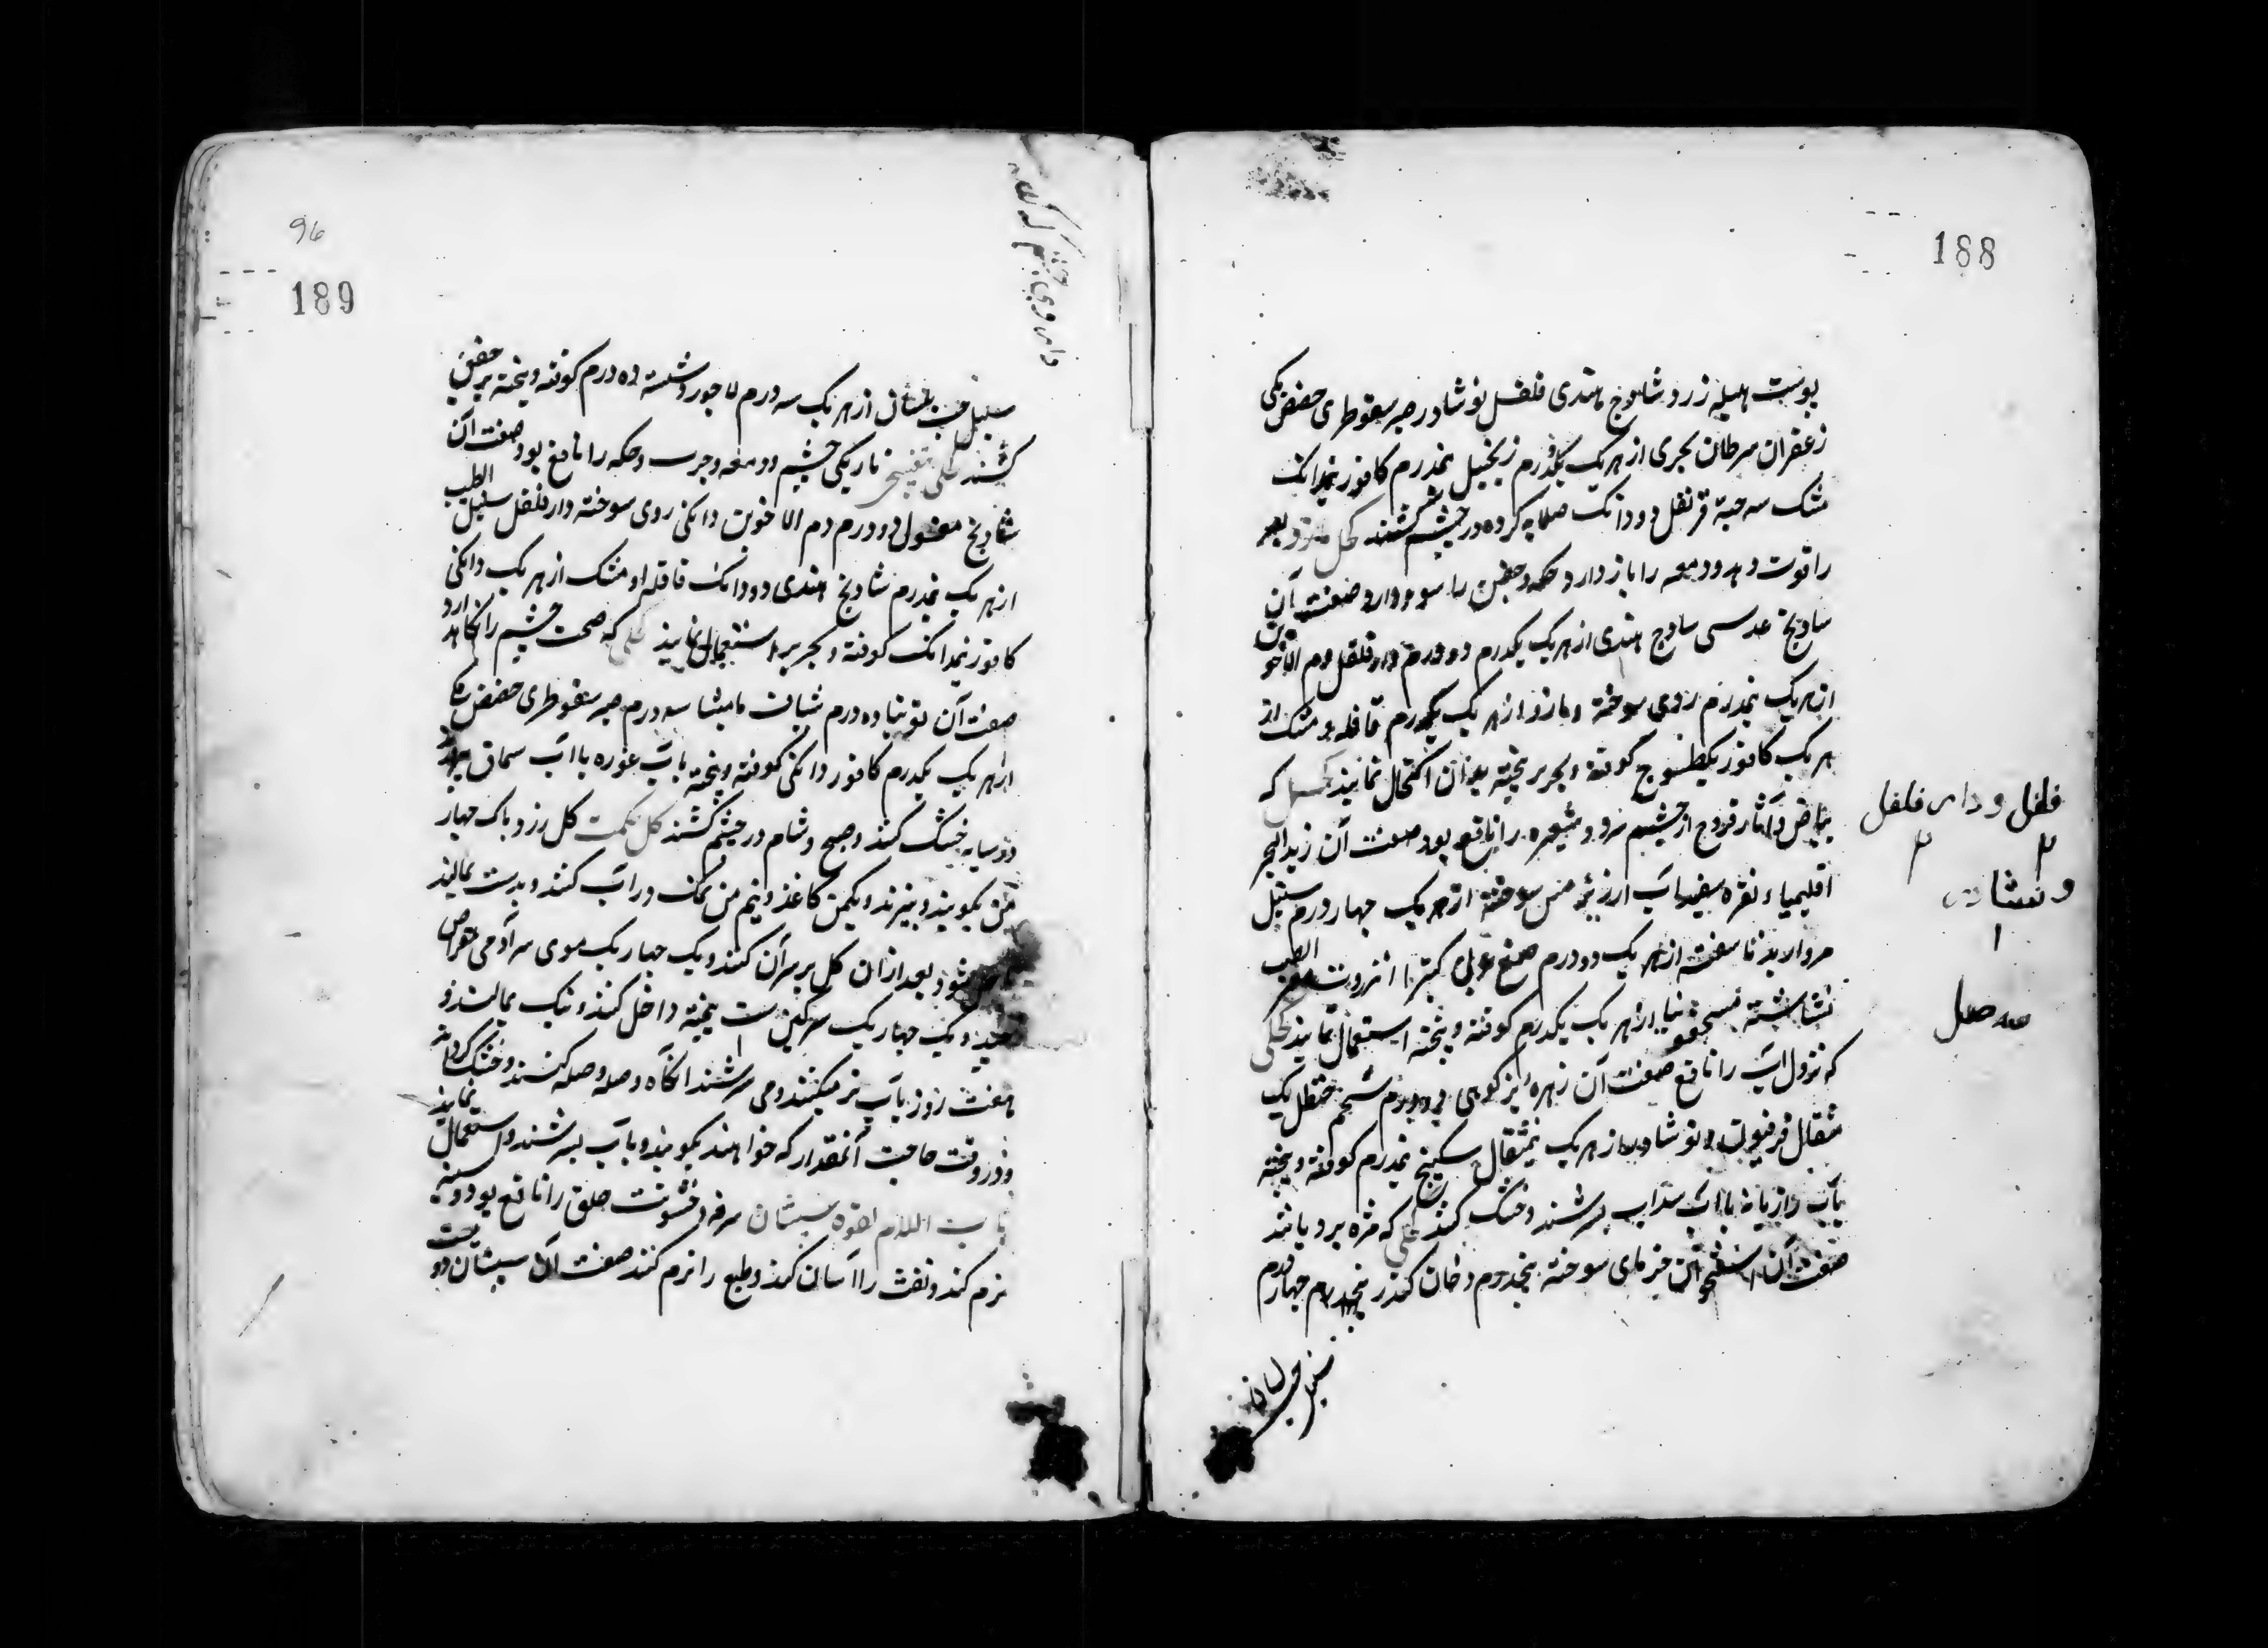 188
پوست هلیله زرد شادنج هندی فلفل نوشادر صبر سقوطری حضض مکی
زعفران سرطان بحری از هر یک یکدرم زنجبیل نیمدرم کافور نیمدانک
مشک سه حبه قرنفل دو دانک صلایه کرده در چشم کشند کحل
را قوت دهد و دمعه را باز دارد و حکه و جفن را سود دارد صفت آن
سادنج عدسی سادج هندی از هر یک یکدرم دو درم دار فلفل دم الاخوین
از هر یک نیمدرم روی سوخته و مازو از هر یک یکدرم قاقله و مشک از
هر یک کافور یکطسوج کوفته و بحریر پخته بدان اکتحال نمایند کحل که
بیاض و آثار قروح از چشم ببرد و شعیره را نافع بود صفت آن زبد البحر
اقلیمیاء نقره سفیداب ارزیز مس سوخته از هر یک چهار درم سنبل الطیب
مروارید ناسفته از هر یک دو درم صمغ عربی کتیرا انزروت
نشاسته از هر یک یکدرم کوفته و پخته استعمال نمایند کحلی
که نزول آب را نافع صفت آن زهره بز کوهی دو درم شحم حنظل یک
مثقال فرفیون نوشادر از هر یک نیمثقال سکبینج نیمدرم کوفته و پخته
بآب رازیانه یا آب سداب بسرشند و خشک کنند کحلی که مژه برویاند
صفت آن استخوان خرمای سوخته پنجدرم دخان کندر پنجدرم چهار درم
سنبل حب لسان
فلفل و دار فلفل
۲ ۲
و نشا
۱
عسل
96
189
سنبل حب بلسان از هر یک سه درم لاجورد شسته ده درم کوفته و پخته بر جفن
کشند کحلی تاریکی چشم و دمعه و جرب و حکه را نافع بود صفت آن
شادنج مغسول دو درم دم الاخوین دانکی روی سوخته دار فلفل سنبل الطیب
از هر یک نیمدرم شادنج هندی دو دانک قاقله و مشک از هر یک دانکی
کافور نیمدانک کوفته و بحریر استعمال نمایند کحلی که صحت چشم را نگاه دارد
صفت آن توتیا ده درم شیاف مامیثا سه درم صبر سقوطری حضض مکی
از هر یک یکدرم کافور دانکی کوفته و پخته بآب غوره یا آب سماق
در سایه خشک کنند و صبح و شام در چشم کشند کل حکمت کل زرد پاک چهار
من بکوبند و ببیزند و یکمن کاغذ و نیم من نمک در آب کنند و بدست بمالند
شود بعد از آن کل بر سر آن کنند و یک چهار یک موی سر آدمی مقراض
و یک چهار یک سرکین پخته داخل کنند و نیک بمالند و
هفت روز بآب تر میکنند و می سرشند آنکاه وصله وصله کنند و خشک کردانند
و در وقت حاجت آنمقدار که خواهند بکوبند و بآب بسرشند و استعمال نمایند
باب اللام لعوق سپستان سرفه و خشونت حلق را نافع بود و سینه
نرم کند و نفث را آسان کند و طبع را نرم کند صفت آن سپستان دو